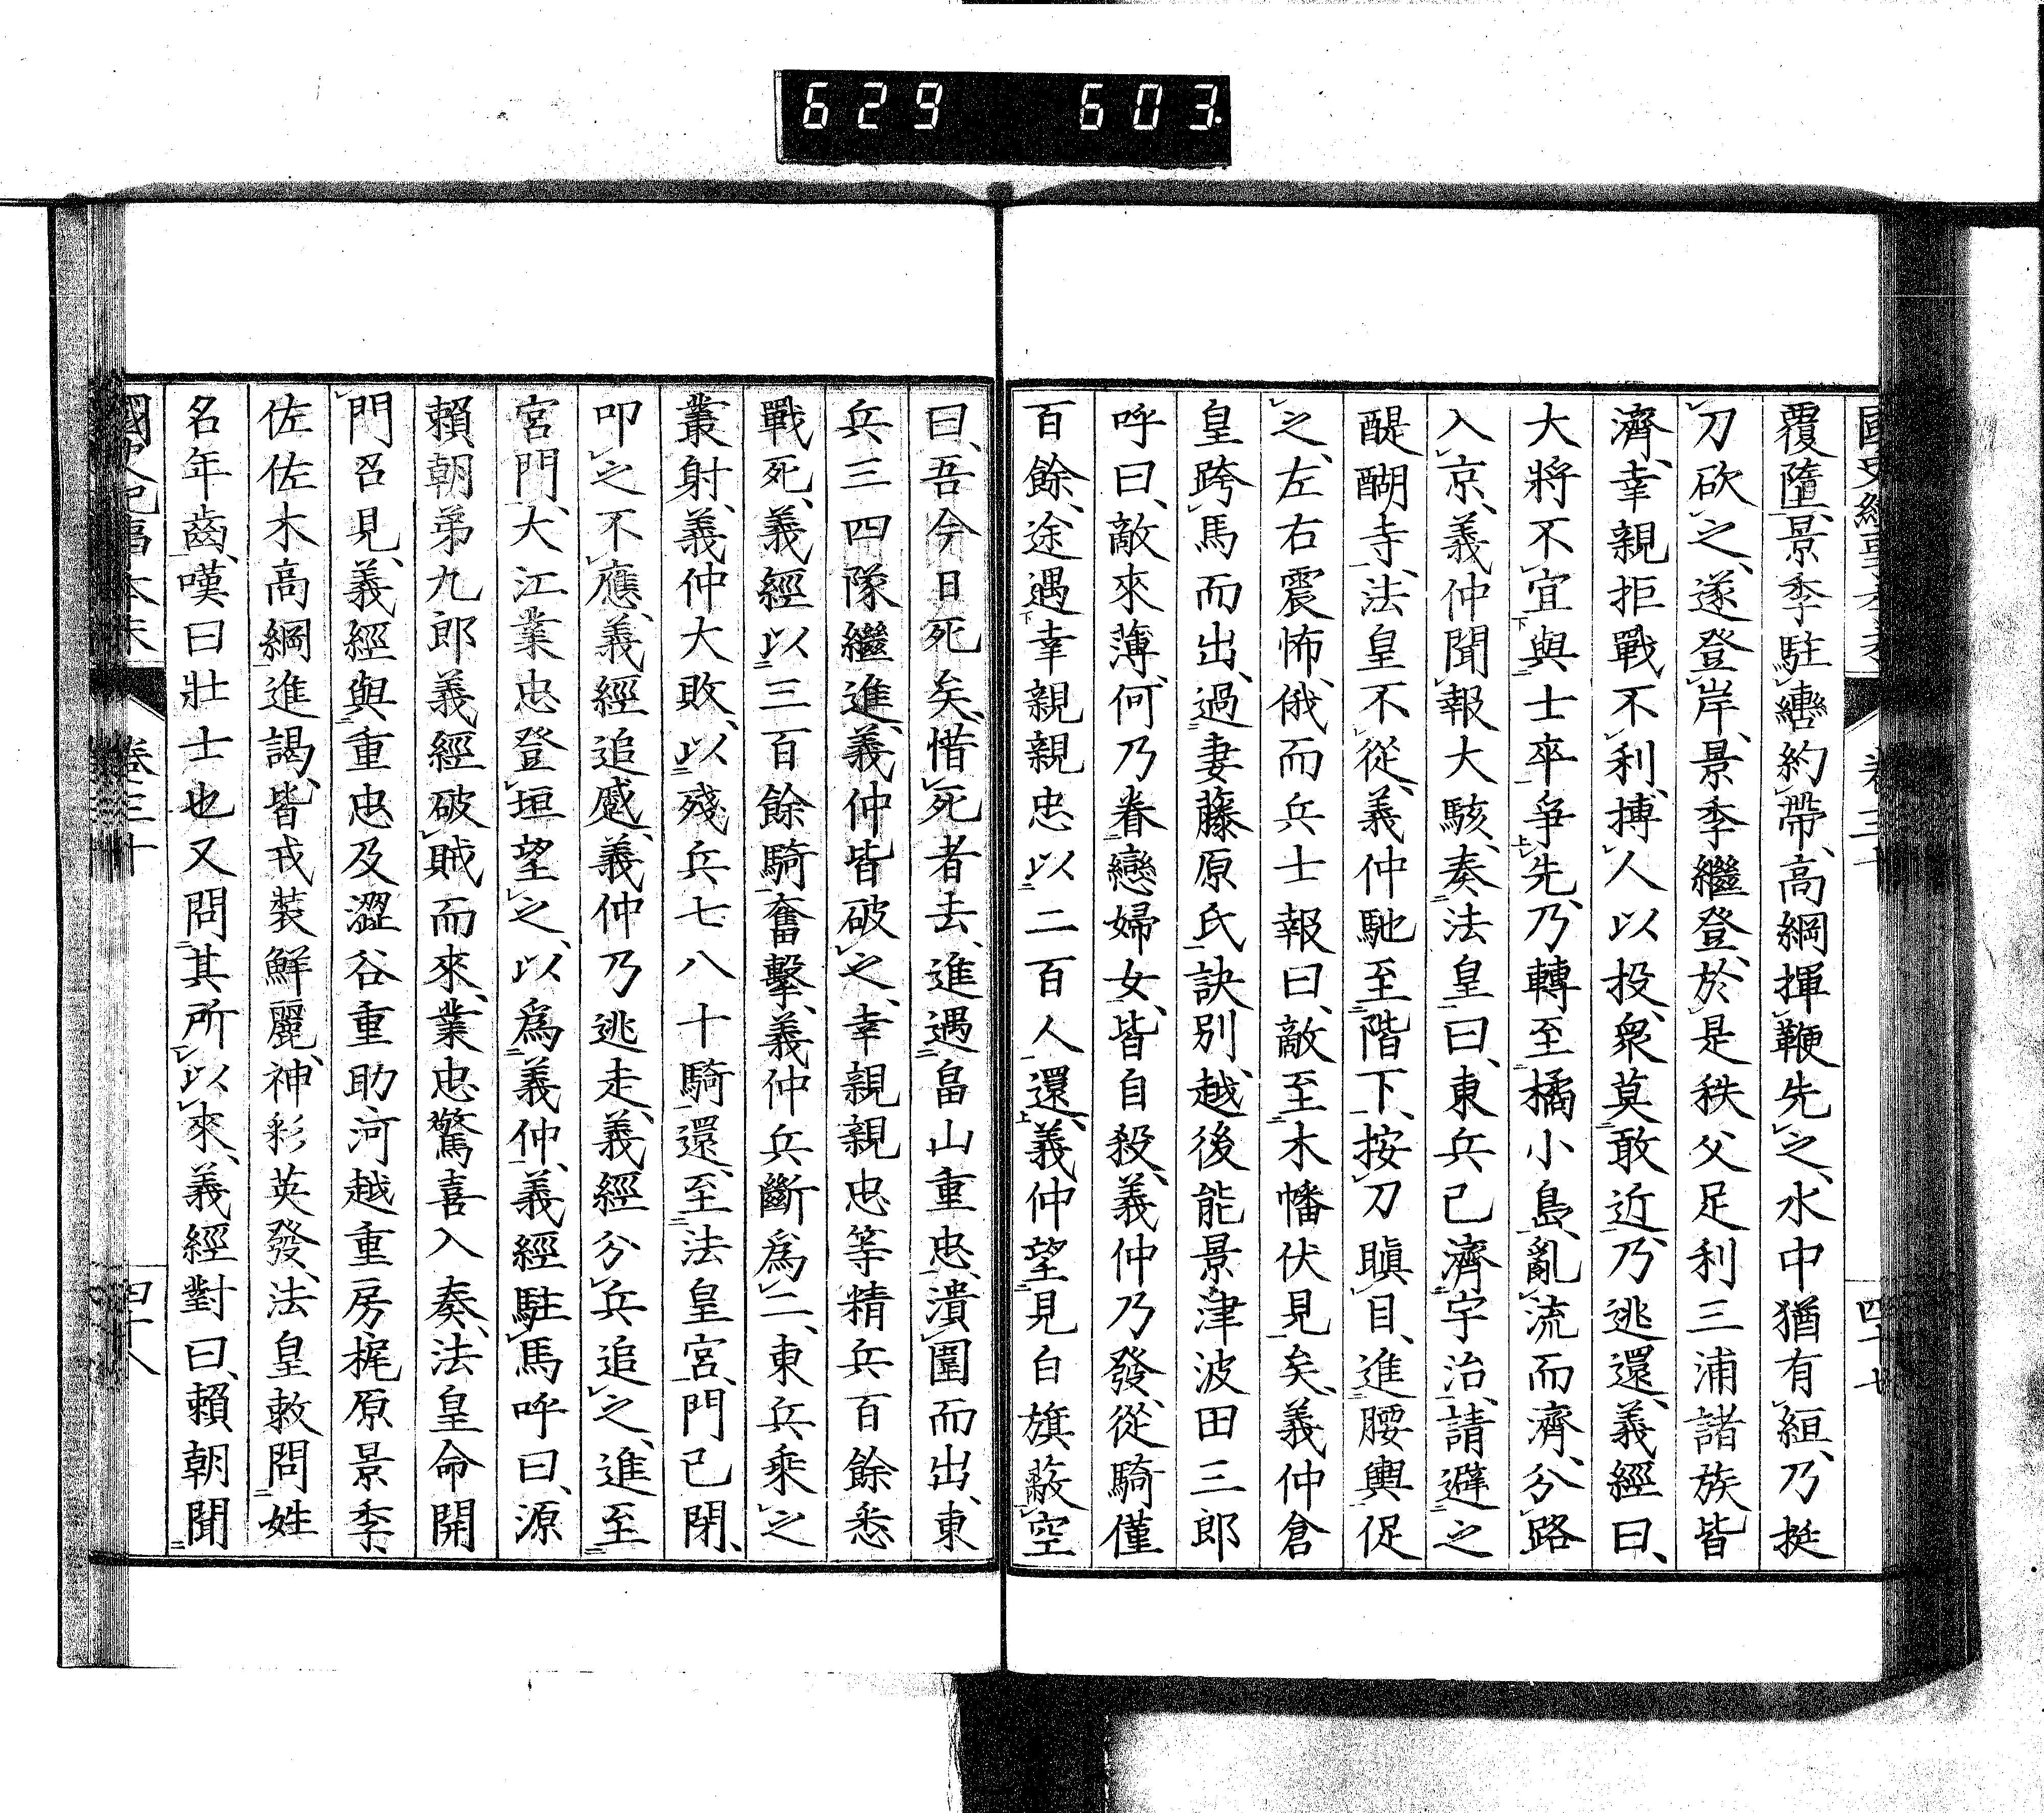 629 603.
覆墮、景季駐轡約帶、高綱揮鞭先之、水中猶有絙、乃挺
刀砍之、遂登岸、景季繼登、於是秩父足利三浦諸族皆
濟、幸親拒戰不利、搏人以投、衆莫敢近、乃逃還、義經曰、
大將不宜與士卒爭先、乃轉至橘小島、亂流而濟、分路
入京、義仲聞報大駭、奏法皇曰、東兵已濟宇治、請避之
醍醐寺、法皇不從、義仲馳至階下、按刀瞋目、進腰輿促
之、左右震怖、俄而兵士報曰、敵至木幡伏見矣、義仲倉
皇跨馬而出、過妻藤原氏訣別、越後能景津波田三郎
呼曰、敵來薄、何乃眷戀婦女、皆自殺、義仲乃發、從騎僅
百餘、途遇幸親親忠以二百人還、義仲望見白旗蔽空
曰、吾今日死矣、惜死者去、進遇畠山重忠、潰圍而出、東
兵三四隊繼進、義仲皆破之、幸親親忠等精兵百餘悉
戰死、義經以三百餘騎奮擊、義仲兵斷爲二、東兵乘之
叢射、義仲大敗、以殘兵七八十騎還、至法皇宮、門已閉、
叩之不應、義經追蹙、義仲乃逃走、義經分兵追之、進至
宮門、大江業忠登垣望之、以爲義仲、義經駐馬呼曰、源
賴朝弟九郎義經破賊而來、業忠驚喜入奏、法皇命開
門召見、義經與重忠及澀谷重助河越重房梶原景季
佐佐木高綱進謁、皆戎裝鮮麗、神彩英發、法皇敕問姓
名年齒、嘆曰壯士也又問其所以來、義經對曰、賴朝聞
國史紀事本末 卷三十 四十八